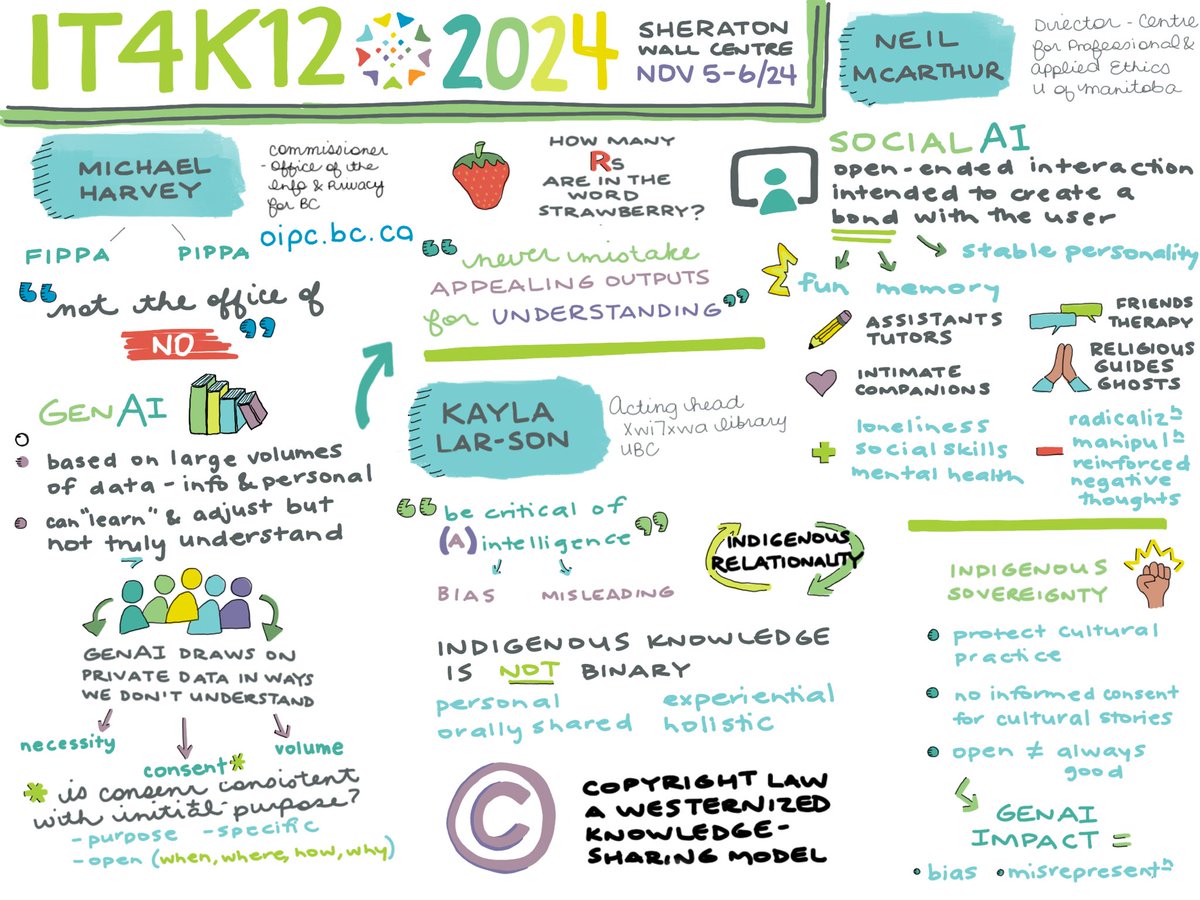 IT4K12 2024
SHERATON
WALL CENTRE
NOV 5-6/24
MICHAEL
HARVEY
commissioner
- Office of the
Info & Privacy
for BC
oipc.bc.ca
FIPPA
PIPPA
"not the office of
NO"
GENAI
based on large volumes
of data - info & personal
can "learn" & adjust but
not truly understand
GENAI DRAWS ON
PRIVATE DATA IN WAYS
WE DON'T UNDERSTAND
necessity
consent*
volume
* is consent consistent
with initial purpose?
- purpose - specific
- open (when, where, how, why)
HOW MANY
Rs
ARE IN THE
WORD
STRAWBERRY?
"never mistake
APPEALING OUTPUTS
for UNDERSTANDING"
KAYLA
LAR-SON
Acting head
Xwi7xwa library
UBC
"be critical of
(A) intelligence"
BIAS
MISLEADING
INDIGENOUS
RELATIONALITY
INDIGENOUS KNOWLEDGE
IS NOT BINARY
personal
experiential
orally shared
holistic
©
COPYRIGHT LAW
A WESTERNIZED
KNOWLEDGE-
SHARING MODEL
NEIL
MCARTHUR
Director - Centre
for Professional &
Applied Ethics
U of Manitoba
SOCIAL AI
open-ended interaction
intended to create a
bond with the user
stable personality
fun
memory
ASSISTANTS
TUTORS
FRIENDS
THERAPY
INTIMATE
COMPANIONS
RELIGIOUS
GUIDES
GHOSTS
+
loneliness
social skills
mental health
-
radicalizⁿ
manipulⁿ
reinforced
negative
thoughts
INDIGENOUS
SOVEREIGNTY
protect cultural
practice
no informed consent
for cultural stories
open ≠ always
good
GENAI
IMPACT =
• bias • misrepresentⁿ